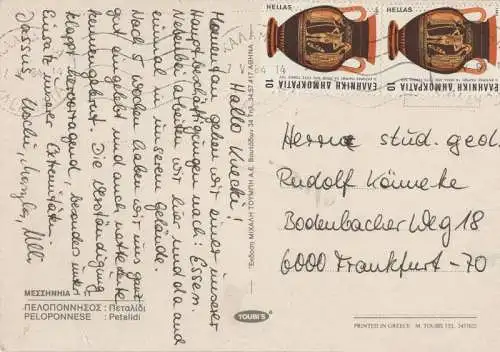 Hallo Knecki!
Momentan gehen wir einer unserer
Hauptbeschäftigungen nach: Essen.
Nebenbei arbeiten wir hier und da auch
einmal in unserem Gelände.
Nach 5 Wochen haben wir uns ganz
gut eingelebt und auch nette Leute
kennengelernt. Die Verständigung
klappt hervorragend, besonders unter
Einsatz unserer Extremitäten.
Jassus, Uschi, Uli
ΜΕΣΣΗΝΙΑ
ΠΕΛΟΠΟΝΝΗΣΟΣ : Πεταλίδι
PELOPONNESE : Petalidi
Ἔκδοση ΜΙΧΑΛΗ ΤΟΥΜΠΗ Α.Ε. 34 Τηλ. 34.57.417 ΑΘΗΝΑ
TOUBI'S
HELLAS
ΕΛΛΗΝΙΚΗ ΔΗΜΟΚΡΑΤΙΑ
10
HELLAS
ΕΛΛΗΝΙΚΗ ΔΗΜΟΚΡΑΤΙΑ
10
Herrn stud. geol.
Rudolf Könneke
Bodenbacher Weg 18
6000 Frankfurt-70
PRINTED IN GREECE M. TOUBIS TEL. 3457622